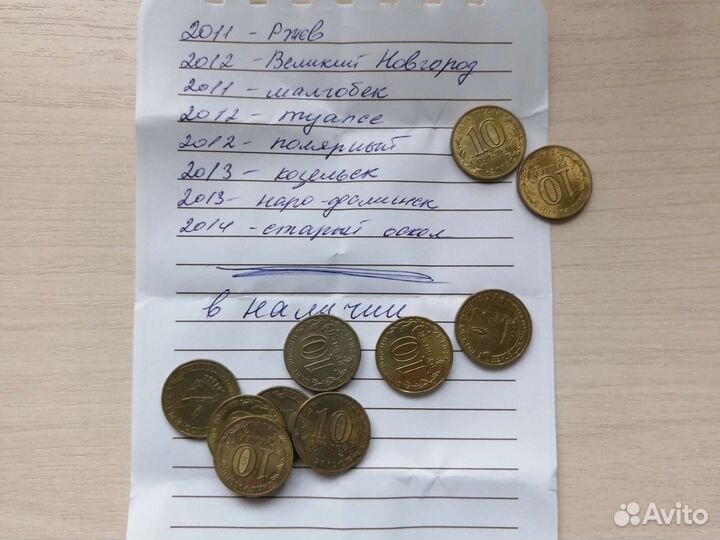 2011 - Ржев
2012 - Великий Новгород
2011 - малгобек
2012 - туапсе
2012 - полярный
2013 - козельск
2013 - наро-фоминск
2014 - старый оскол
в наличии
10
10
10
10
10
10
Avito